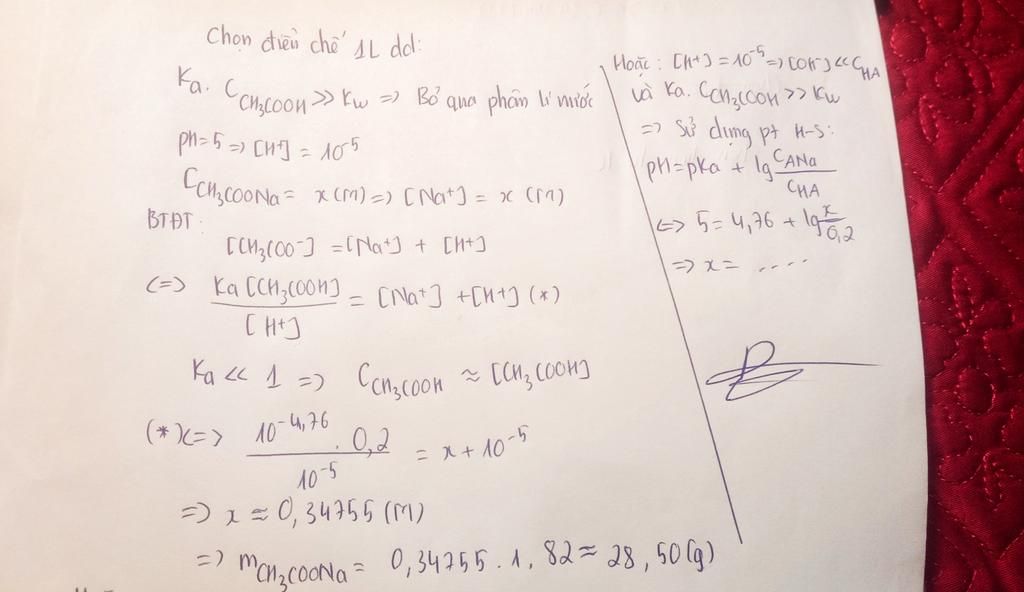 Chọn điều chế 1L dd:
Ka. C_CH3COOH >> Kw => Bỏ qua phân li nước
pH=5 => [H+] = 10^-5
C_CH3COONa = x (M) => [Na+] = x (M)
BTĐT:
[CH3COO-] = [Na+] + [H+]
<=> Ka[CH3COOH] / [H+] = [Na+] + [H+] (*)
Ka << 1 => C_CH3COOH ≈ [CH3COOH]
(*) <=> 10^-4,76 . 0,2 / 10^-5 = x + 10^-5
=> x ≈ 0,34755 (M)
=> m_CH3COONa = 0,34755 . 1 . 82 ≈ 28,50 (g)
Hoặc: [H+] = 10^-5 => [OH-] << C_HA
và Ka. C_CH3COOH >> Kw
=> Sử dụng pt H-S:
pH = pKa + lg C_ANa / C_HA
<=> 5 = 4,76 + lg x / 0,2
=> x = ....